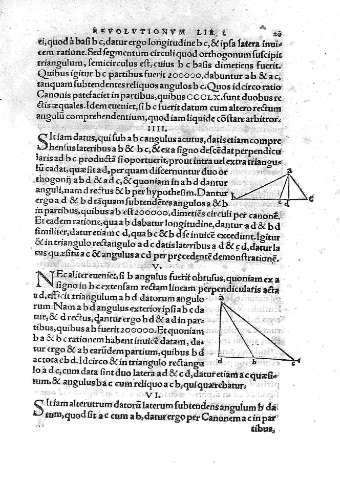 REVOLVTIONVM LIB. I.
ei, quod à basi b c, datur ergo longitudine b c, & ipsa latera inuicem
cem ratione. Sed segmentum circuli quod orthogonum suscipit
triangulum, semicirculus est, cuius b c basis dimetiens fuerit.
Quibus igitur b c partibus fuerit 200000, dabuntur a b & a c,
tanquam subtendentes reliquos angulos b c. Quos idcirco ratio
Canonis patefaciet in partibus, quibus CCCLX. sunt duobus re
ctis æquales. Idem eueniet, si b c fuerit datum cum altero rectum
angulũ comprehendentium, quod iam liquide cõstare arbitror.
IIII.
SIt iam datus, qui sub a b c angulus acutus, datis etiam compre
hensus lateribus a b & b c, & ex a signo descẽdat perpendicu
laris ad b c productã si oportuerit, prout intra uel extra triangu
lũ cadat, quæ sit a d, per quam discernuntur duo or
thogonij a b d & a d c, & quoniam in a b d dantur
anguli, nam d rectus & b per hypothesim. Dantur
ergo a d & b d tanquam subtendẽtes angulos a & b
in partibus, quibus a b est 200000. dimetiẽs circuli per canonẽ.
Et eadem ratione, qua a b dabatur longitudine, dantur a d & b d
similiter, datur etiam c d, qua b c & b d se inuicẽ excedunt. Igitur
& in triangulo rectangulo a d c datis lateribus a d & c d, datur la
tus quæsitũ a c & angulus a c d per præcedentẽ demonstrationẽ.
V.
NEc aliter eueniet, si b angulus fuerit obtusus, quoniam ex a
signo in b c extensam rectam lineam perpendicularis acta
a d, efficit triangulum a b d datorum angulo
rum. Nam a b d angulus exterior ipsi a b c da
tur, & d rectus, dantur ergo b d & a d in par
tibus, quibus a b fuerit 200000. Et quoniam
b a & b c rationem habent inuicẽ datam, da
tur ergo & a b earũdem partium, quibus b d
ac tota c b d. Idcirco & in triangulo rectangu
lo a d c, cum data sint duo latera a d & c d, datur etiam a c quæsi-
tum, & angulus b a c cum reliquo a c b, qui quærebatur.
VI.
SIt iam alterutrum datorũ laterum subtendens angulum b da
tum, quod sit a c cum a b, datur ergo per Canonem a c in par
tibus,
a
b
d
c
a
d
b
c